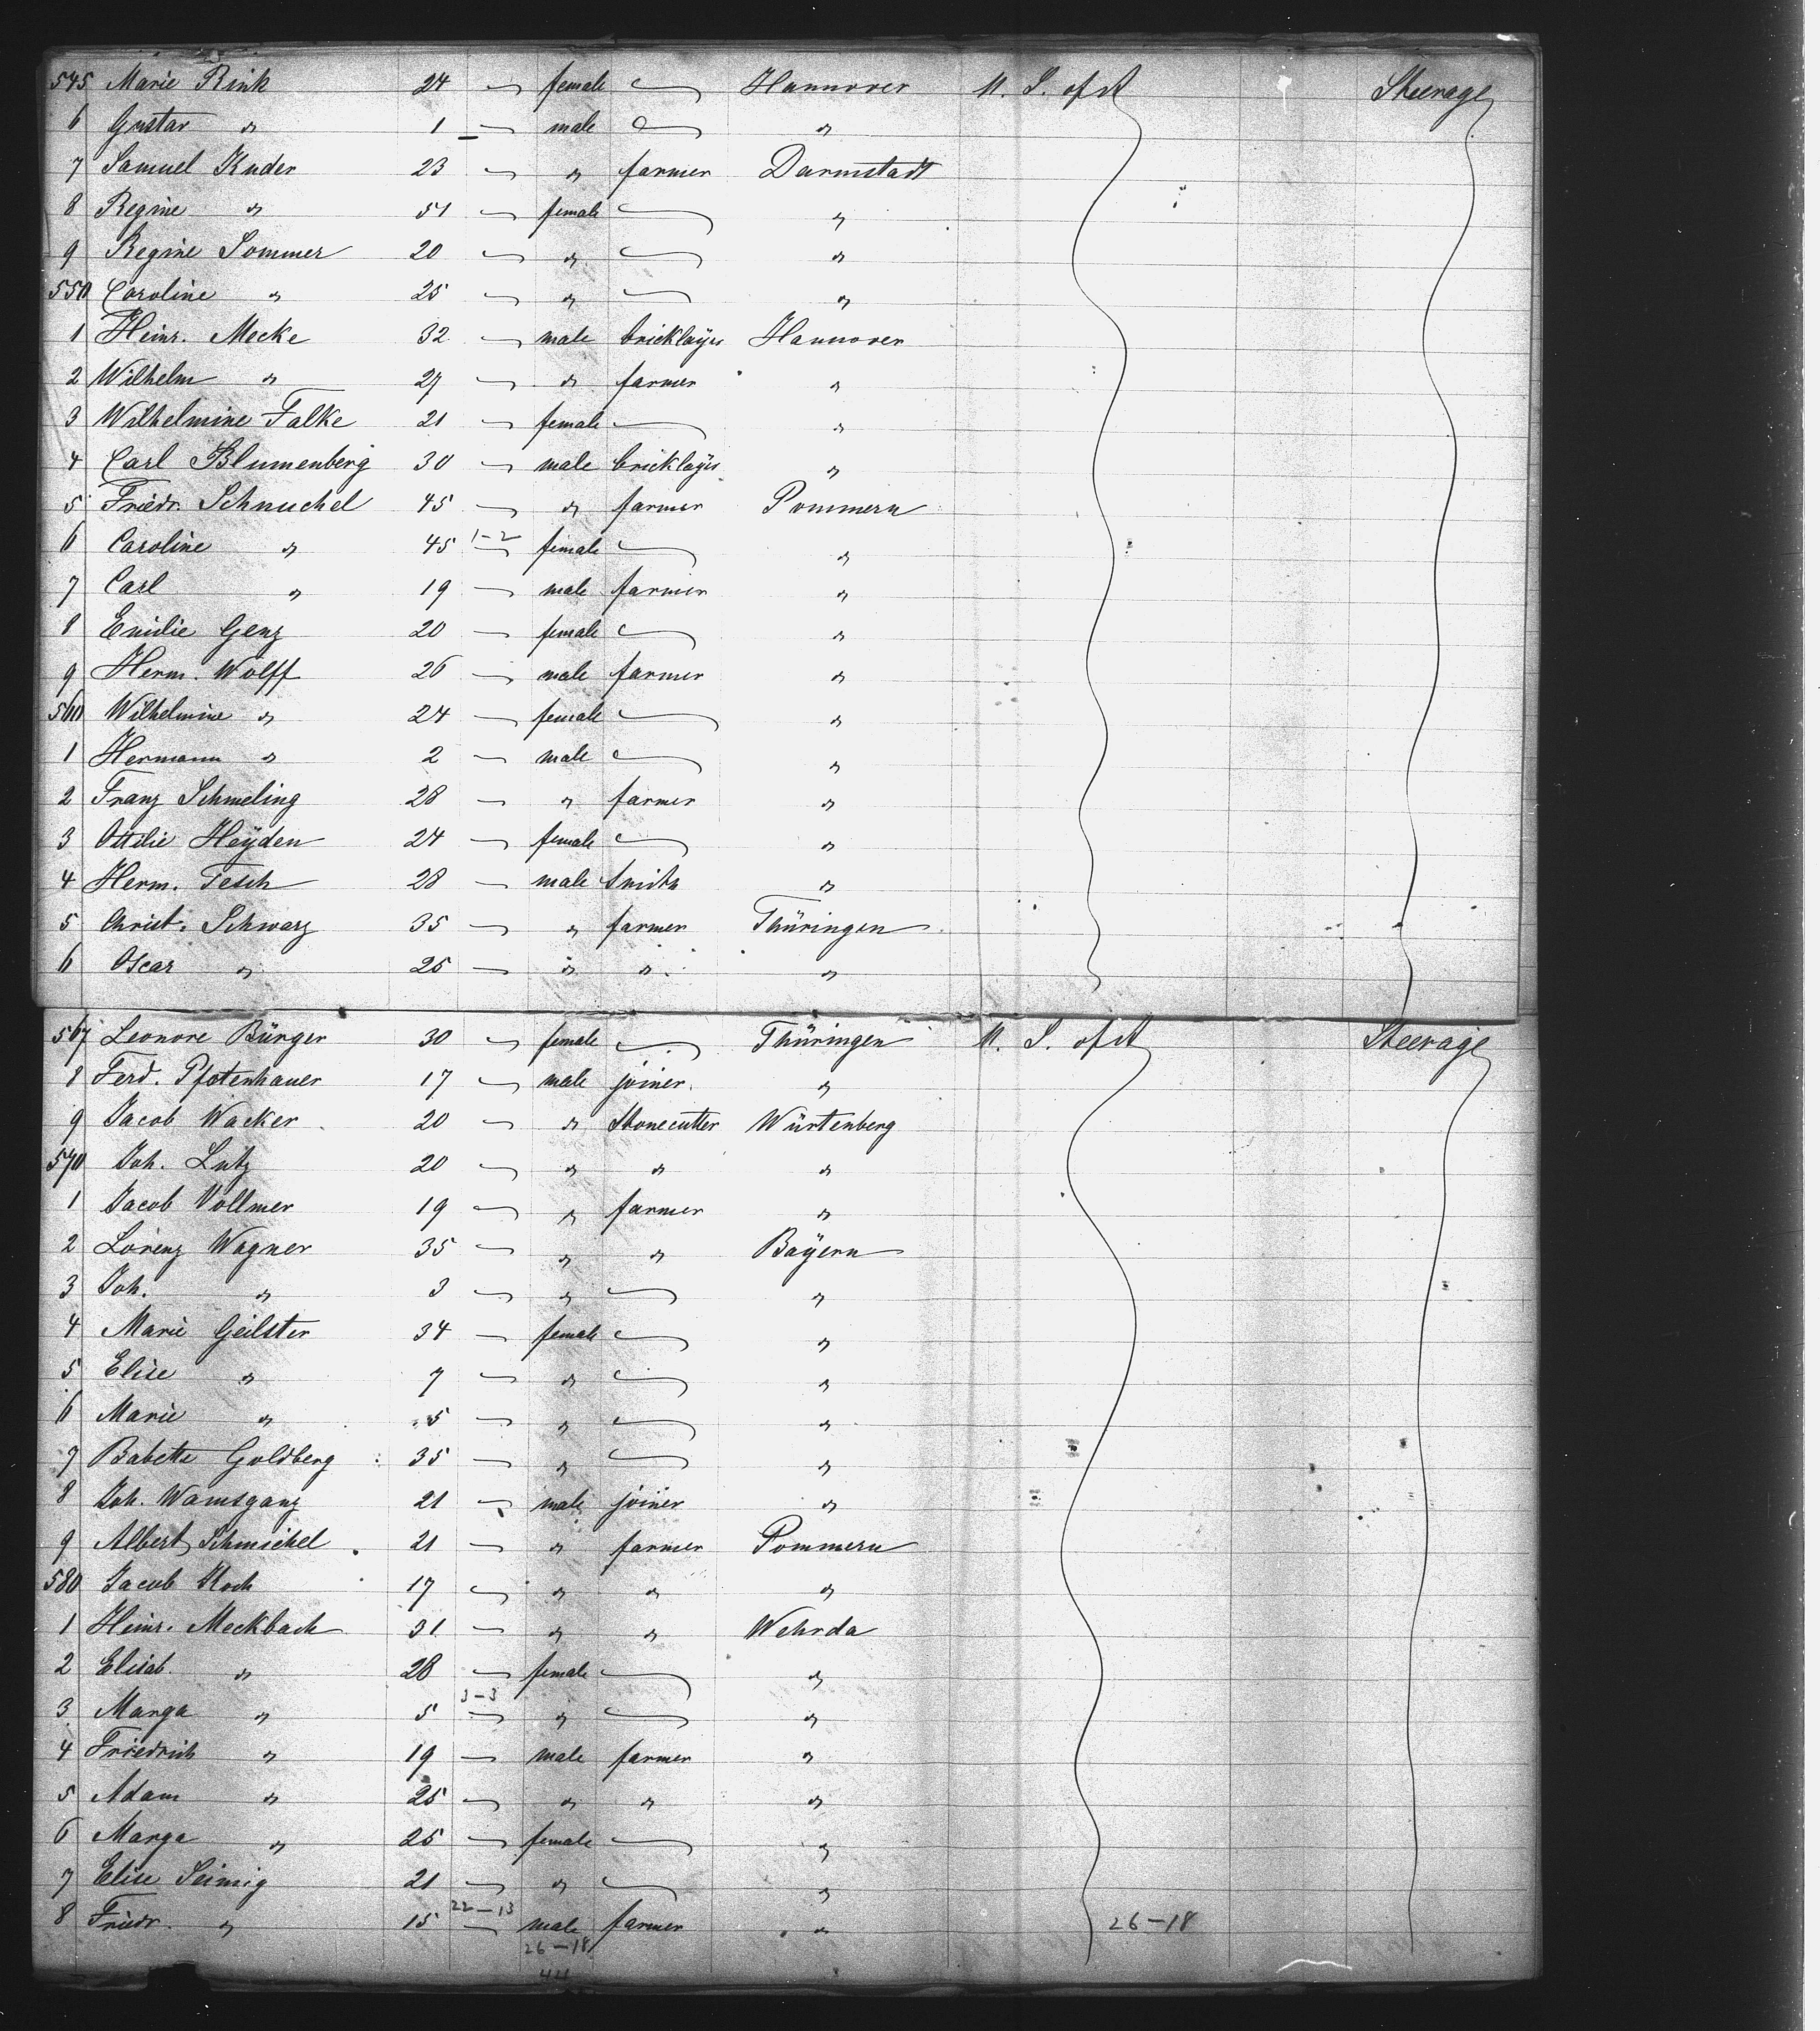 545 Marie Rink 24 female Hannover U. S. of A Steerage
6 Gustav " 1 male "
7 Samuel Kuder 23 " farmer Darmstadt
8 Regine " 51 female "
9 Regine Sommer 20 " "
550 Caroline " 25 " "
1 Heinr. Mecke 32 male bricklayer Hannover
2 Wilhelm " 27 " farmer "
3 Wilhelmine Falke 21 female "
4 Carl Blumenberg 30 male bricklayer "
5 Friedr. Schnuchel 45 " farmer Pommern
6 Caroline " 45 1-2 female "
7 Carl " 19 male farmer "
8 Emilie Genz 20 female "
9 Herm. Wolff 26 male farmer "
560 Wilhelmine " 24 female "
1 Hermann " 2 male "
2 Franz Schmeling 28 " farmer "
3 Ottilie Heÿden 24 female "
4 Herm. Tesch 28 male Smith "
5 Christ. Schwarz 35 " farmer Thüringen
6 Oscar " 25 " " "
567 Leonore Bürger 30 female Thüringen U. S. of A Steerage
8 Ferd. Pfotenhauer 17 male joiner "
9 Jacob Wacker 20 " Stonecutter Würtenberg
570 Joh. Lutz 20 " " "
1 Jacob Vollmer 19 " farmer "
2 Lorenz Wagner 35 " " Baÿern
3 Joh. " 3 " "
4 Marie Geilster 34 female "
5 Elise " 7 " "
6 Marie " 5 " "
7 Babette Goldberg 35 " "
8 Joh. Wamsganz 21 male joiner "
9 Albert Schmichel 21 " farmer Pommern
580 Jacob Koch 17 " " "
1 Heinr. Meckbach 31 " " Wehrda
2 Elisab. " 28 female "
3 Marga " 5 3-3 " "
4 Friedrich " 19 male farmer "
5 Adam " 25 " " "
6 Marga " 25 female "
7 Elise Seimig 21 " "
8 Friedr. " 15 22-13 male farmer " 26-18
26-18
44